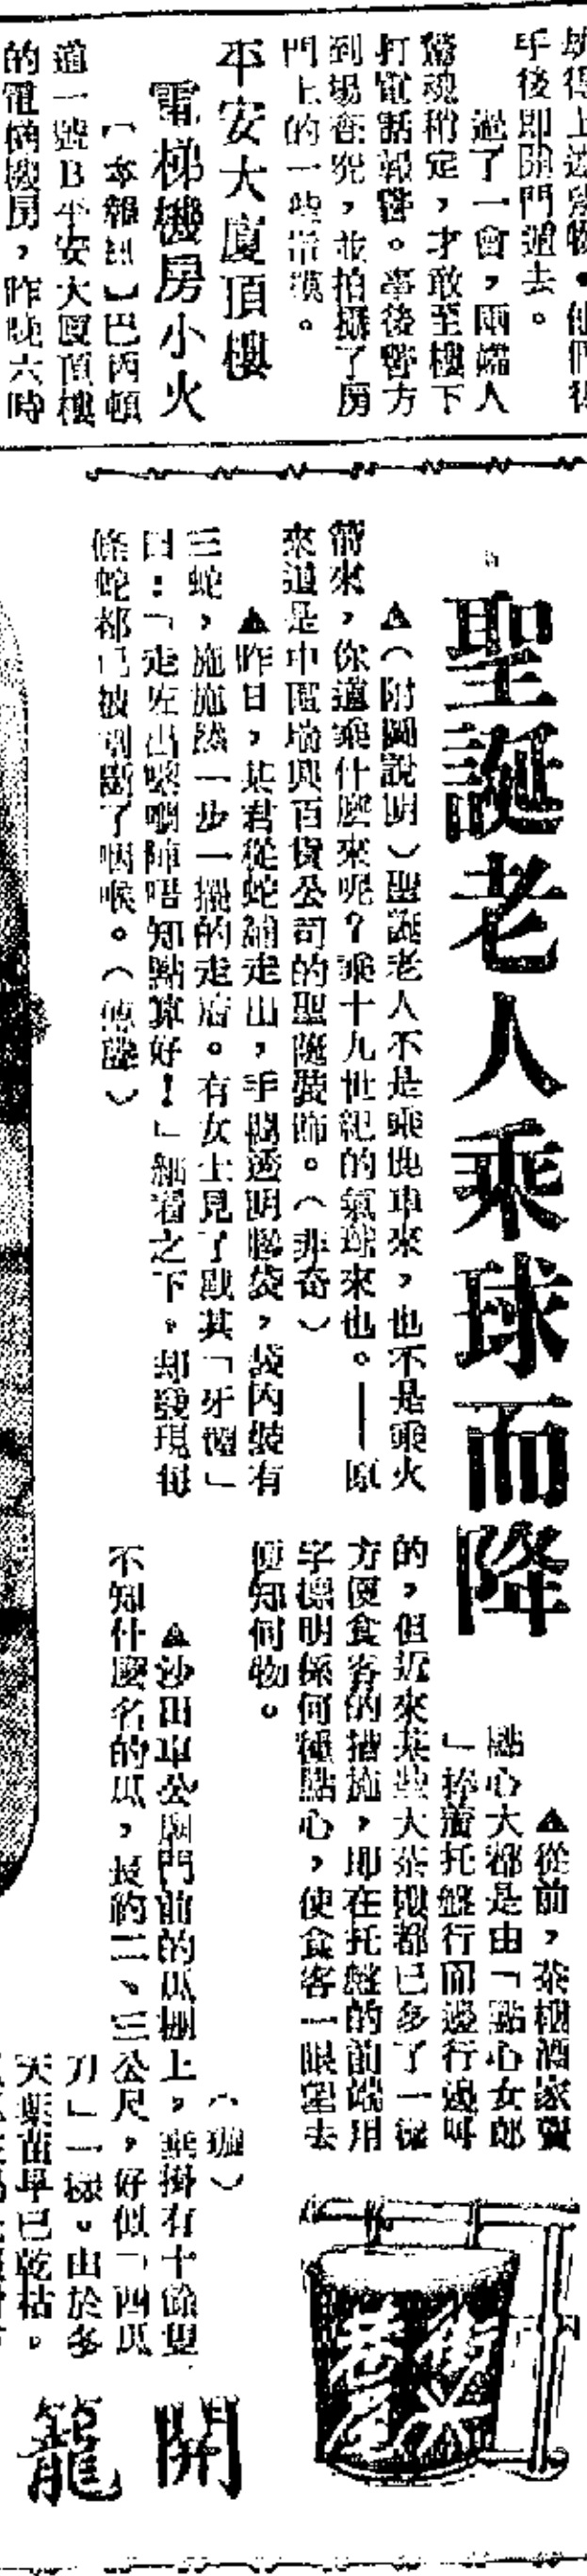 助得上述財物。他們得
手後即開門遁去。
過了一會,兩婦人
驚魂稍定,才敢至樓下
打電話報警。事後警方
到場查究,並拍攝了房
門上的一些指模。
平安大廈頂樓
電梯機房小火
【本報訊】巴丙頓
道一號B平安大廈頂樓
的電梯機房,昨晚六時
聖誕老人乘球而降
▲(附圖說明)聖誕老人不是乘拖車來,也不是乘火
箭來,你道乘什麼來呢?乘十九世紀的氣球來也。——原
來這是中區瑞興百貨公司的聖誕裝飾。(非奇)
▲昨日,某君從蛇舖走出,手攜透明膠袋,袋內裝有
三蛇,施施然一步一擺的走着。有女士見了戥其「牙煙」
曰:「走左出嚟嗰陣唔知點算好!」細看之下,却發現每
條蛇都已被割斷了咽喉。
▲從前,茶樓酒家賣
點心大都是由「點心女郎
」捧着托盤行而邊行邊叫
的,但近來某些大茶樓都已多了一種
方便食客的措施,即在托盤的前端用
字標明係何種點心,使食客一眼望去
便知何物。
▲沙田車公廟門前的瓜棚上,垂掛有十餘隻
不知什麼名的瓜,長約二、三公尺,好似「西瓜
刀」一樣。由於冬
天葉苗早已乾枯,
開
籠